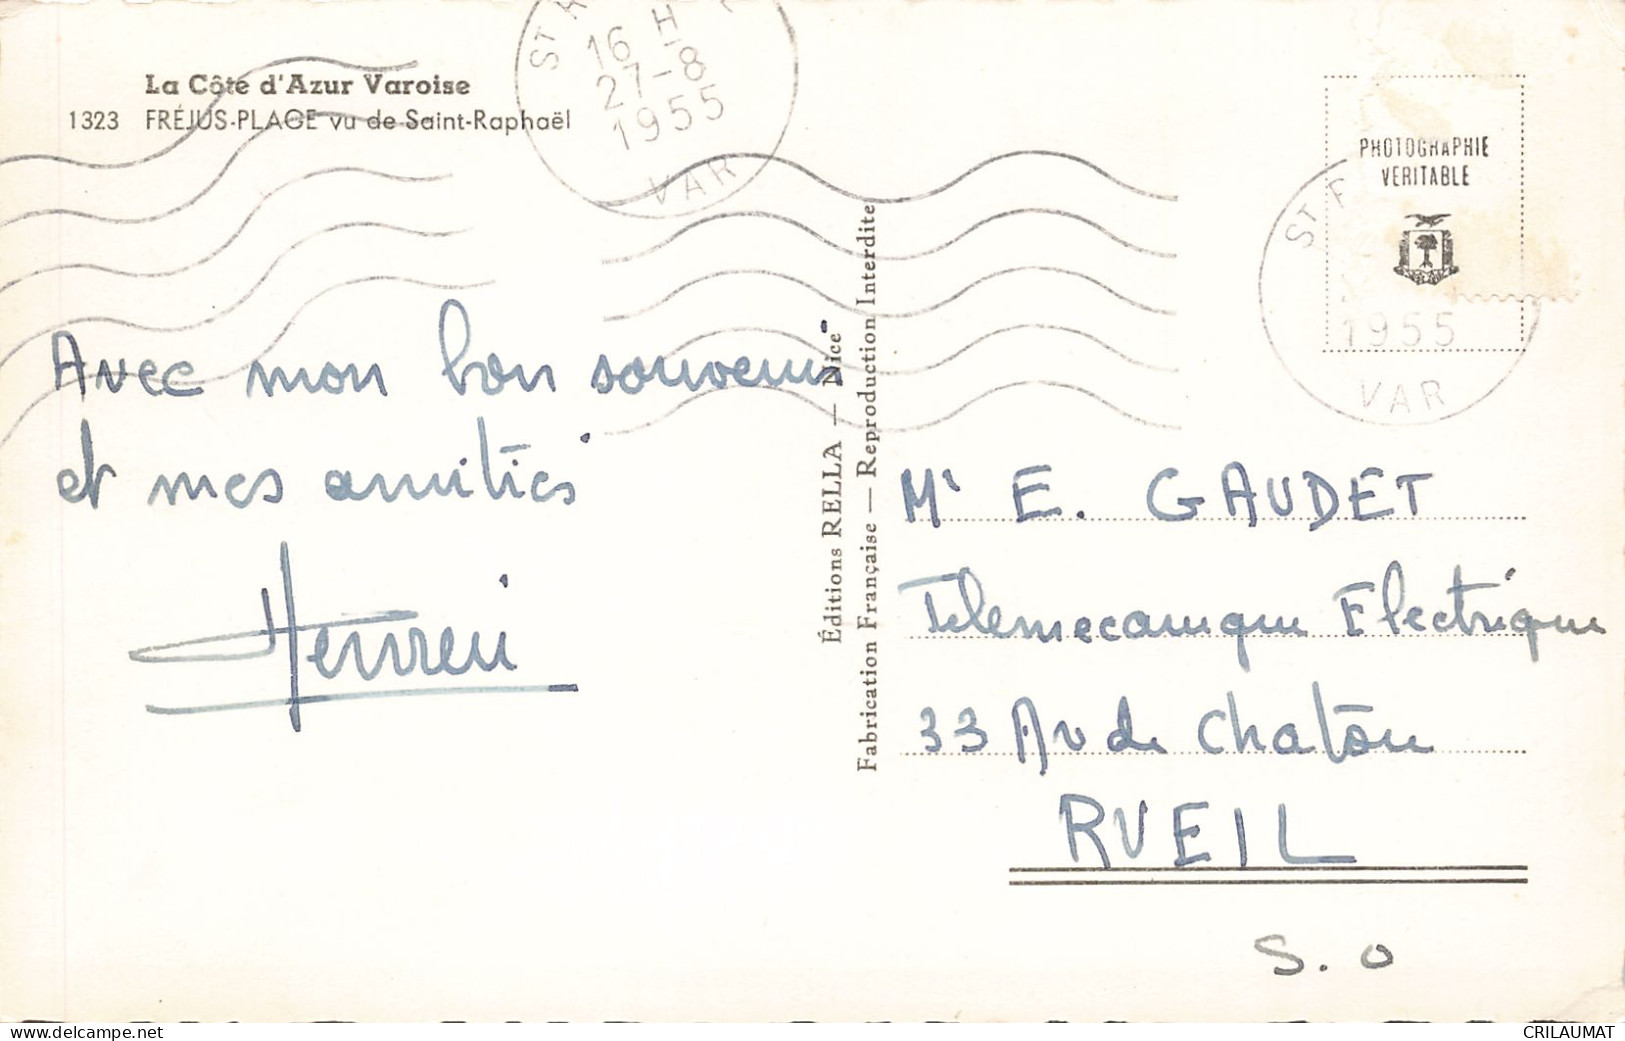 La Côte d'Azur Varoise
1323 FRÉJUS-PLAGE vu de Saint-Raphaël
ST
16 H
27-8
1955
VAR
PHOTOGRAPHIE
VERITABLE
ST
1955
VAR
Avec mon bon souvenir
et mes amitiés
Éditions RELLA — Nice
Fabrication Française — Reproduction Interdite
Mr E. GAUDET
Telemecanique Electrique
33 Av de Chatou
RUEIL
S. O
delcampe.net
CRILAUMAT